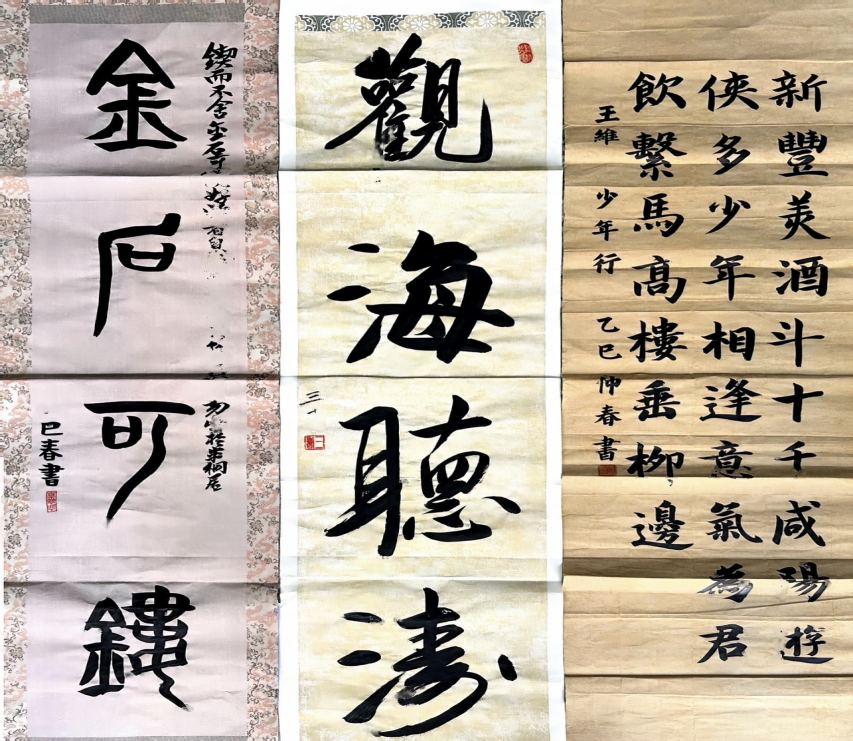 新豐美酒斗十千咸陽遊
俠多少年相逢意氣為君
飲繫馬高樓垂柳邊
王維 少年行 乙巳仲春書
觀海聽濤
鍥而不舍金石
金石可鏤
巳春書